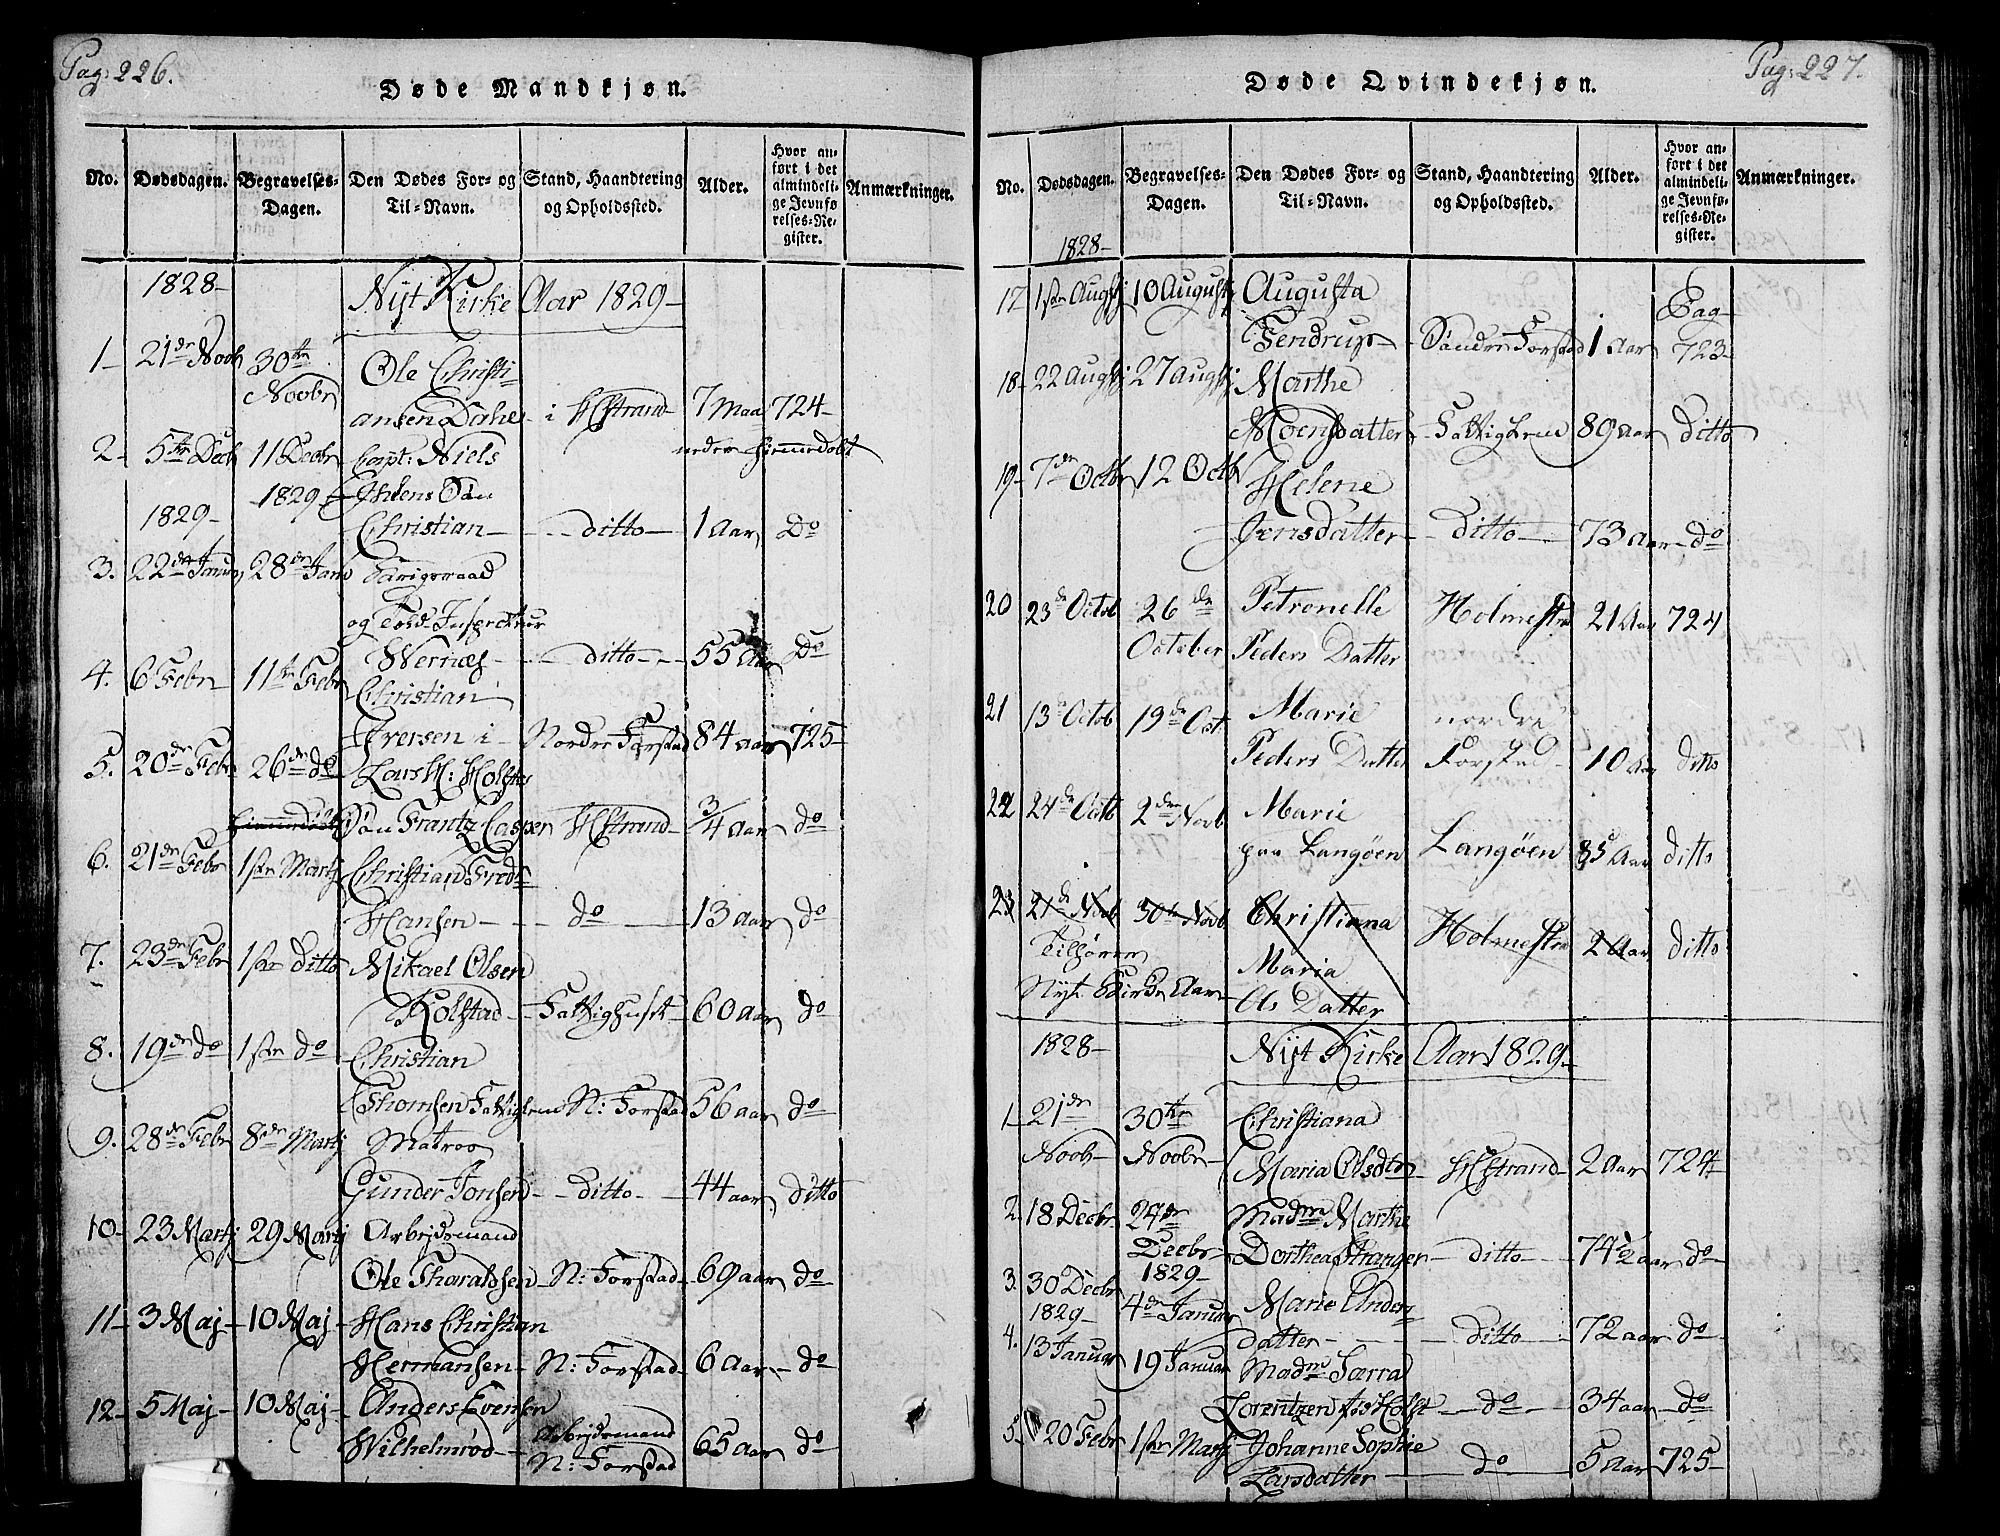 Pag: 226.
Døde Mandkjøn.
No. Dødsdagen. Begravelses-Dagen. Den Dødes For- og Til-Navn. Stand, Haandtering og Opholdssted. Alder. Hvor anført i det almindelige Jevnførelses-Register. Anmærkninger.
1828- Nÿt Kirke Aar 1829-
1- 21de Novb 30te Novbr Ole Christi
ansen Dahe- i Hstrand- 7 Maa 724-
2- 5te Decb 11 Decbr Capt: Niels hiemmedøbt
1829- 1829- Ihlens Søn
Christian- ditto- 1 Aar Do
3. 22de Janua 28de Janu
og Told-Inspecteur
Wernes- ditto- 55 Aar Do
4. 6 Febr 11te Febr Christian
Iversen i- Nordre Forstad 84 aar 725-
5. 20de Febr 26de do Lars H: Holsts
Søn Frantz Casper Hstrand- 3/4 Aar do
6. 21de Febr 1ste Martj Christian Fredr
Hansen- do- 13 aar do
7. 23de Febr 1ste ditto Mikael Olsen
Kolstad- Fattighuset- 60 aar do
8. 19de do 1ste do Christian
Thomsen Fattiglem N: Forstad 56 aar do
9. 28de Febr 8de Martj Matros
Gunder Jonsen- ditto- 44 aar ditto
10- 23 Martj 29 Martj Arbejdsmand
Ole Tharaldsen- N: Forstad- 69 aar do
11- 3 Maj- 10 Maj- Hans Christian
Hermansen- N: Forstad- 6 Aar- do
12- 5 Maj- 10 Maj- Anders Evensen
Wilhelmrød- Arbejdsmand N: Forstad 65 aar do
Pag: 227.
Døde Qvindekjøn.
No. Dødsdagen. Begravelses-Dagen. Den Dødes For- og Til-Navn. Stand, Haandtering og Opholdssted. Alder. Hvor anført i det almindelige Jevnførelses-Register. Anmærkninger.
1828-
17 1ste Augstj 10 Augustj Augusta Pag-
Fendrup- Søndre Forstad 1 Aar 723-
18- 22 Augstj 27 Augstj Marthe
Moensdatter- Fattiglem 89 aar ditto
19- 7de Octbr 12 Octb Helene
Jensdatter- ditto- 73 aar- do
20 23de Octob 26de Petronelle Holmestra 21 Aar 724
October Peders Datter
21 13de Octob 19de Oct. Marie nordre
Peders Datter Forstad- 10 Aar ditto
22 24de Octb 2den Novb Marie
paa Langøen Langøen 85 Aar ditto
23 21de Novb 30te Novb Christiana Holmestra 2 Aar ditto
Tilhører Maria
Nyt Kirke Aar- Ols Datter
1828- Nÿt Kirke Aar 1829-
1- 21de 30te Christiana
Novb- Novbr- Maria Olsdtr- Hstrand- 2 Aar 724-
2. 18 Decbr 24de Madme Marthe
Decbr- Dorthea Stranger- ditto- 74 1/2 aar do-
3. 30 Decbr 1829- Marie Anders
1829- 4de Januar datter- ditto- 72 aar do-
4. 13 Januar 19 Januar Madme Sarra
Lorentzen fød Holst- do- 34 aar- do-
5- 20 Febr 1ste Martj Johanne Sophie
Larsdatter- do- 5 Aar 725-